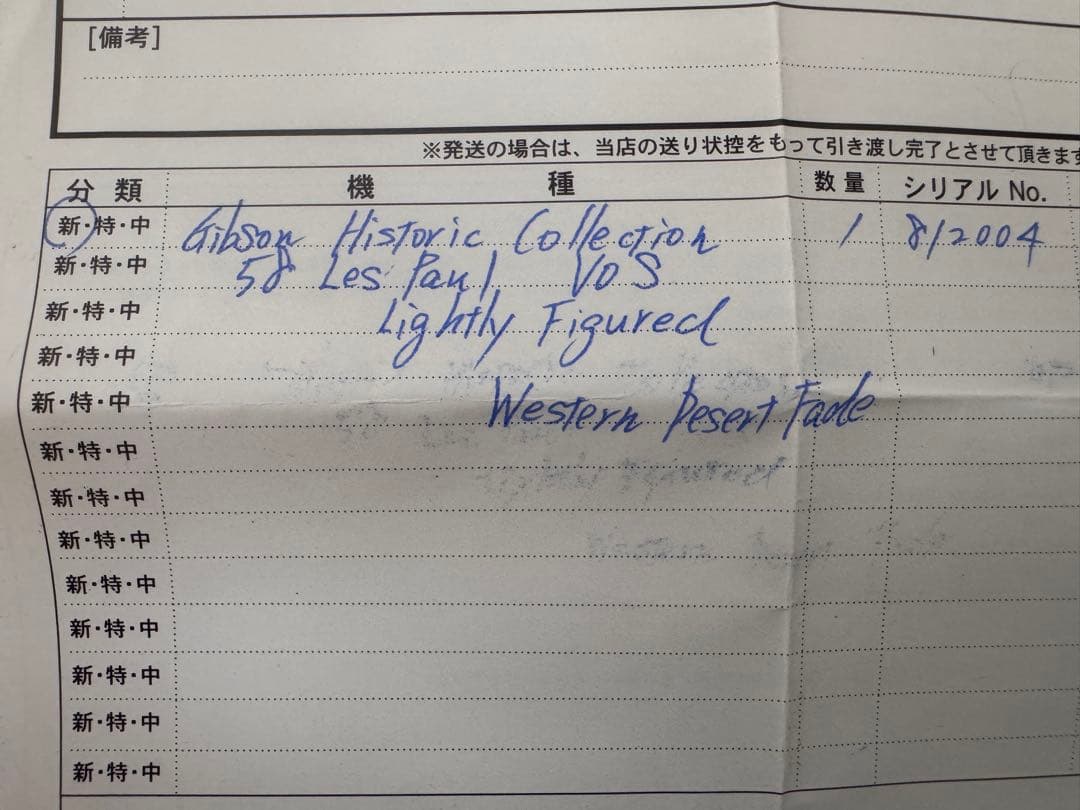 [備考]
※発送の場合は、当店の送り状控をもって引き渡し完了とさせて頂きます
分類 機種 数量 シリアル No.
新・特・中 Gibson Historic Collection 1 812004
新・特・中 58 Les Paul VOS
新・特・中 Lightly Figured
新・特・中
新・特・中 Western Desert Fade
新・特・中
新・特・中
新・特・中
新・特・中
新・特・中
新・特・中
新・特・中
新・特・中